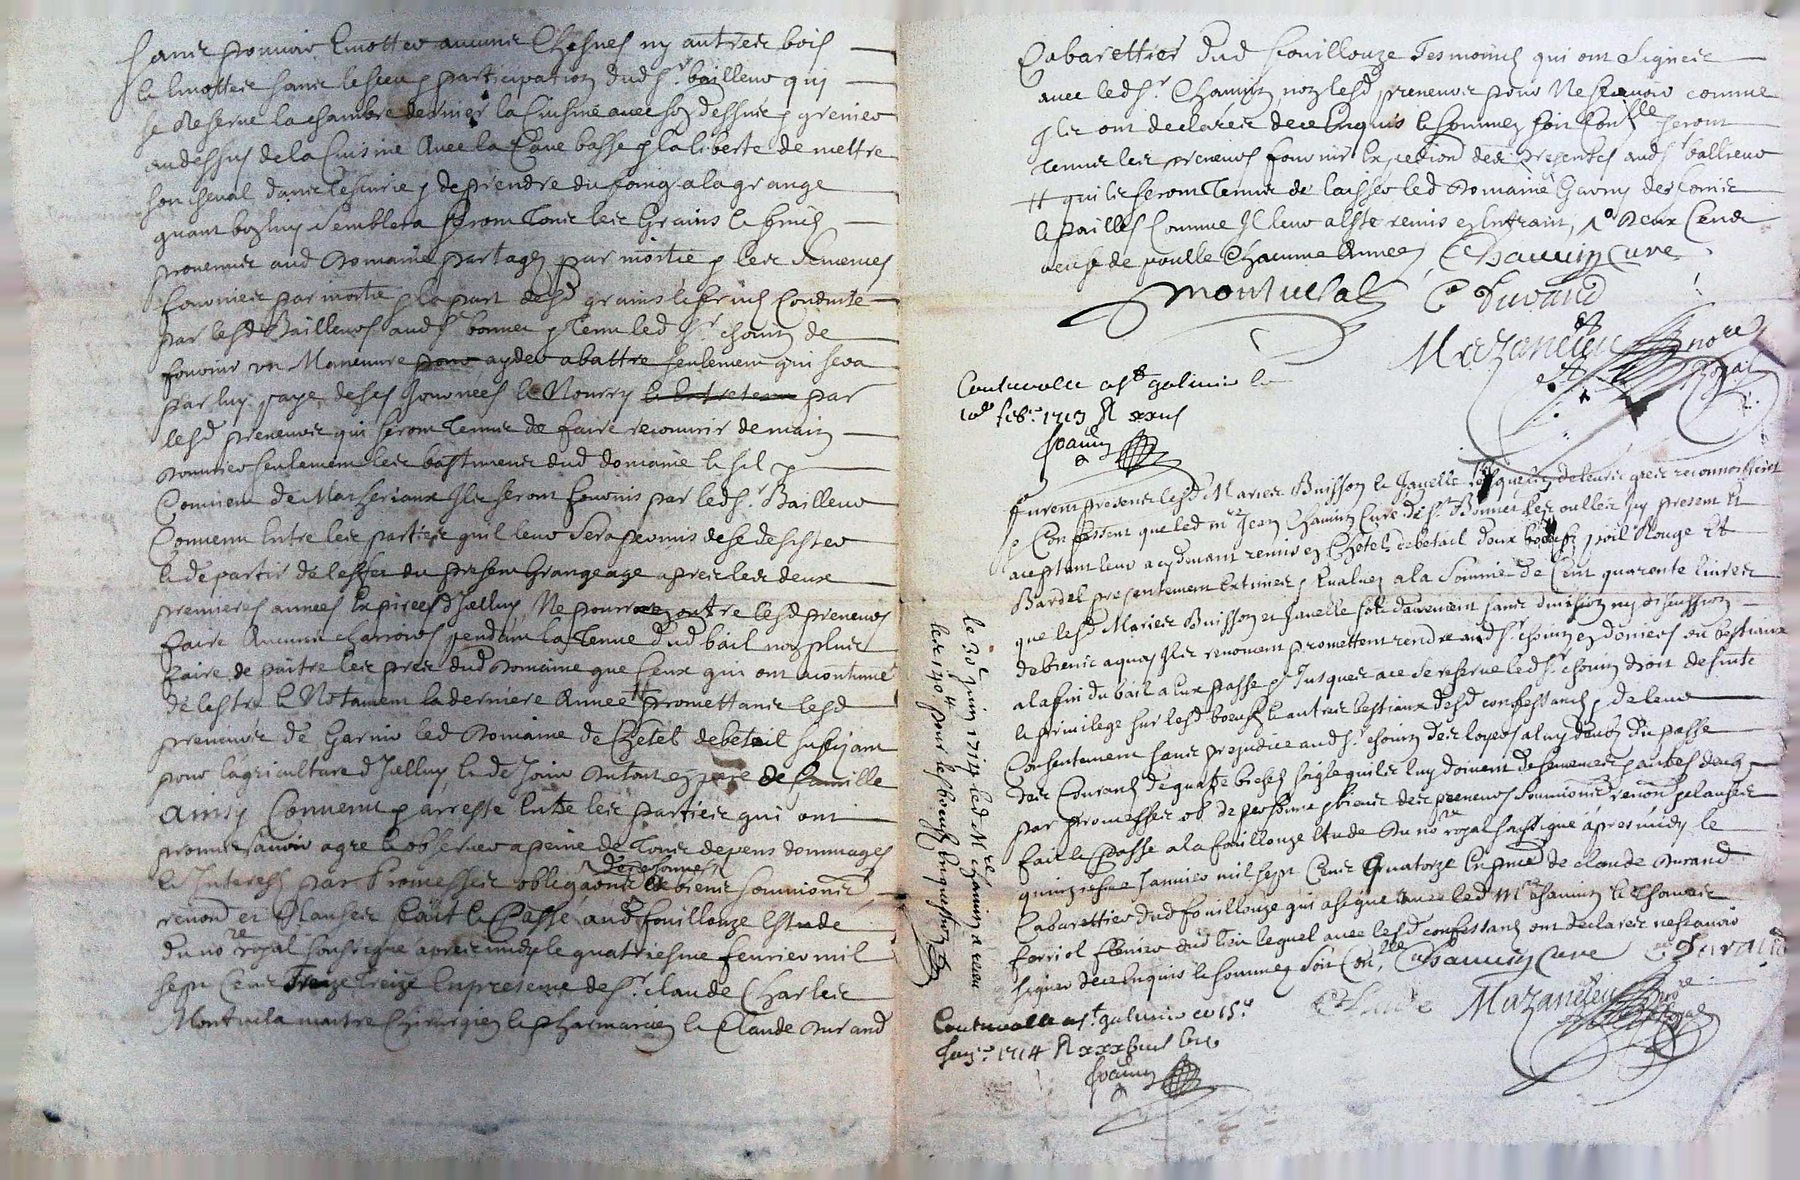 sans pouvoir emotter aucuns Chesnes ny autres bois
le emotter sans le sceu & participation dud Sr. bailleur qui
se Reserve la chambre dernier la Cuisine avec son dessus & grenier
au dessus de la Cuisine Avec la Cave basse & la liberte de mettre
son cheval dans lescurie & de prendre du foing a la grange
quant bon luy semblera seront Tous les Grains & fruits
provenus aud Domaine partages par moitie & les semences
fournies par moitie & la part desd grains & fruits Conduite
par lesd Bailleurs aud St bonnet & Tenu led Sr. chouin de
fournir un Maneuvre pour ayder a battre seulement qui sera
par luy paye de ses Journees & Nourry & entretenu par
lesd preneurs qui seront Tenus de faire recouvrir de main
seulement les bastiments dud domaine & sil
Convient de Materiaux Ils seront fournis par led Sr. Bailleur
Convenu Entre les parties quil leur sera permis de se desister
& departir de leffet du present Grangeage apres les deux
premieres annees Expirees dIcelluy Ne pourront outre lesd preneurs
faire Aucuns charrois pendant la Tenue dud bail non plus
faire de paitre les pres dud Domaine que Ceux qui ont acoutume
de lestre & Notament la derniere Annee promettans lesd
preneurs de Garnir led Domaine de Chetel de betail sufizant
pour lagriculture dIcelluy & de Jouir du tout en pere de famille
Ainsy Convenu & arreste Entre les parties qui ont
promis avoir agre & observer a peine de Tous depens dommages
& Interests par Promesses obligaons de personnes & biens soumissions
renonc et Clauses fait & Passe aud fouillouze Estude
du nore royal soubsigne apres midy le quatriesme fevrier mil
sept Cent Treize Treize En presence de Sr. claude Charles
Montvila maitre Chirurgien & pharmacien & Claude Durand
Cabarettier dud fouillouze Tesmoins qui ont signes
avec led Sr. Chauvin non lesd preneurs pour Ne scavoir comme
Ils ont declares de ce Enquis & sommes soit Conlle seront
tenus les preneurs fournir Expedion des presentes aud Sr bailleur
# quils seront Tenus de laisser led Domaine Garny des foins
& pailles Comme Il leur a este remis en Entrant
de poulle Chaume Annee Chauvin Cure
Montvila C Durand
Mazancieu nore Royal
Contrerolle a St galmier le
10e feb. 1713
Furent presents lesd Maries Buisson & Janelle lesquels de leurs gres reconnoissent
& Confessent que led mre Jean Chauvin Cure de St Bonnet les oulles Icy present et
aceptant leur a cy devant remis en Chetel de betail deux boeufs poil Rouge et
Bardel presentement Estimes & Evalues a la Somme de Cent quarente livres
que lesd Maries Buisson et Janelle sollidairement sans division ny discussion
de biens a quoy Ils renoncent promettent rendre aud Sr chouin en deniers ou bestiaux
a la fin du bail a eux passe & Jusques a ce se reserve led Sr chouin droit de suitte
& privilege sur lesd boeufs & autres bestiaux desd confessants & de leur
Consentement sans prejudice aud Sr. chouin des loyers a luy deubs du passe
des Courants de quatre bichets soigle quils luy doivent de semences
par promesses ob de personne & biens des preneurs soumissions renon & clauses
fait & Passe a la fouillouze Estude du nore royal soubsigne apres midy le
quinziesme Janvier mil sept Cent Quatorze En pnce de claude Durand
Cabarettier dud fouillouze qui a signe avec led Mre Chauvin & Thomas
ferriol dud lieu lequel avec lesd confessants ont declares ne scavoir
signer de ce Enquis & sommes soit Conlle Chauvin Cure C Durand
Mazancieu nore Royal
Contrerolle a St. galmier ce 15e
Jan. 1714
le 30 juin 1714 led Mre Chauvin a receu
les 140 # pour les boeufs en question